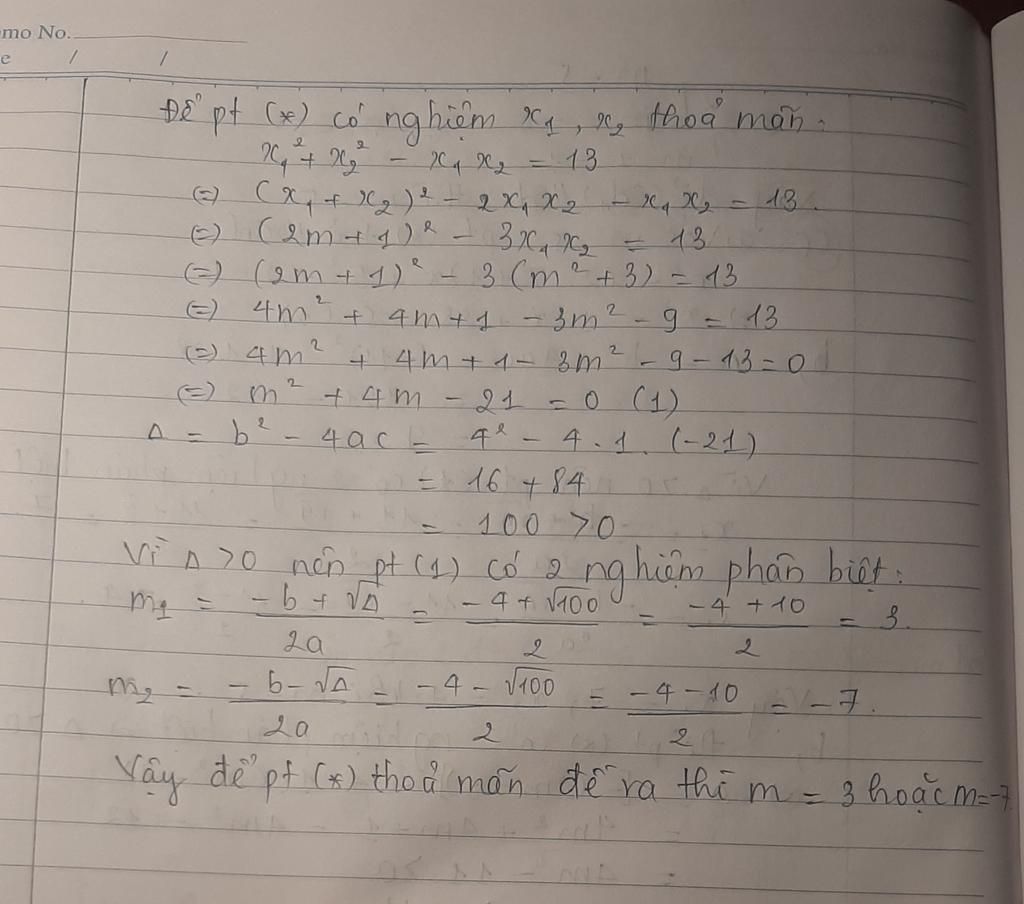 mo No.
e / /
Để pt (*) có nghiệm x₁, x₂ thoả mãn:
x₁² + x₂² - x₁ x₂ = 13
(=) (x₁ + x₂)² - 2x₁ x₂ - x₁ x₂ = 13.
(=) (2m + 1)² - 3x₁ x₂ = 13
(=) (2m + 1)² - 3 (m² + 3) = 13
(=) 4m² + 4m + 1 - 3m² - 9 = 13
(=) 4m² + 4m + 1 - 3m² - 9 - 13 = 0
(=) m² + 4m - 21 = 0 (1)
Δ = b² - 4ac = 4² - 4 . 1. (-21)
= 16 + 84
= 100 > 0
Vì Δ > 0 nên pt (1) có 2 nghiệm phân biệt:
m₁ = (-b + √Δ)/2a = (-4 + √100)/2 = (-4 + 10)/2 = 3.
m₂ = (-b - √Δ)/2a = (-4 - √100)/2 = (-4 - 10)/2 = -7.
Vậy để pt (*) thoả mãn đề ra thì m = 3 hoặc m = -7